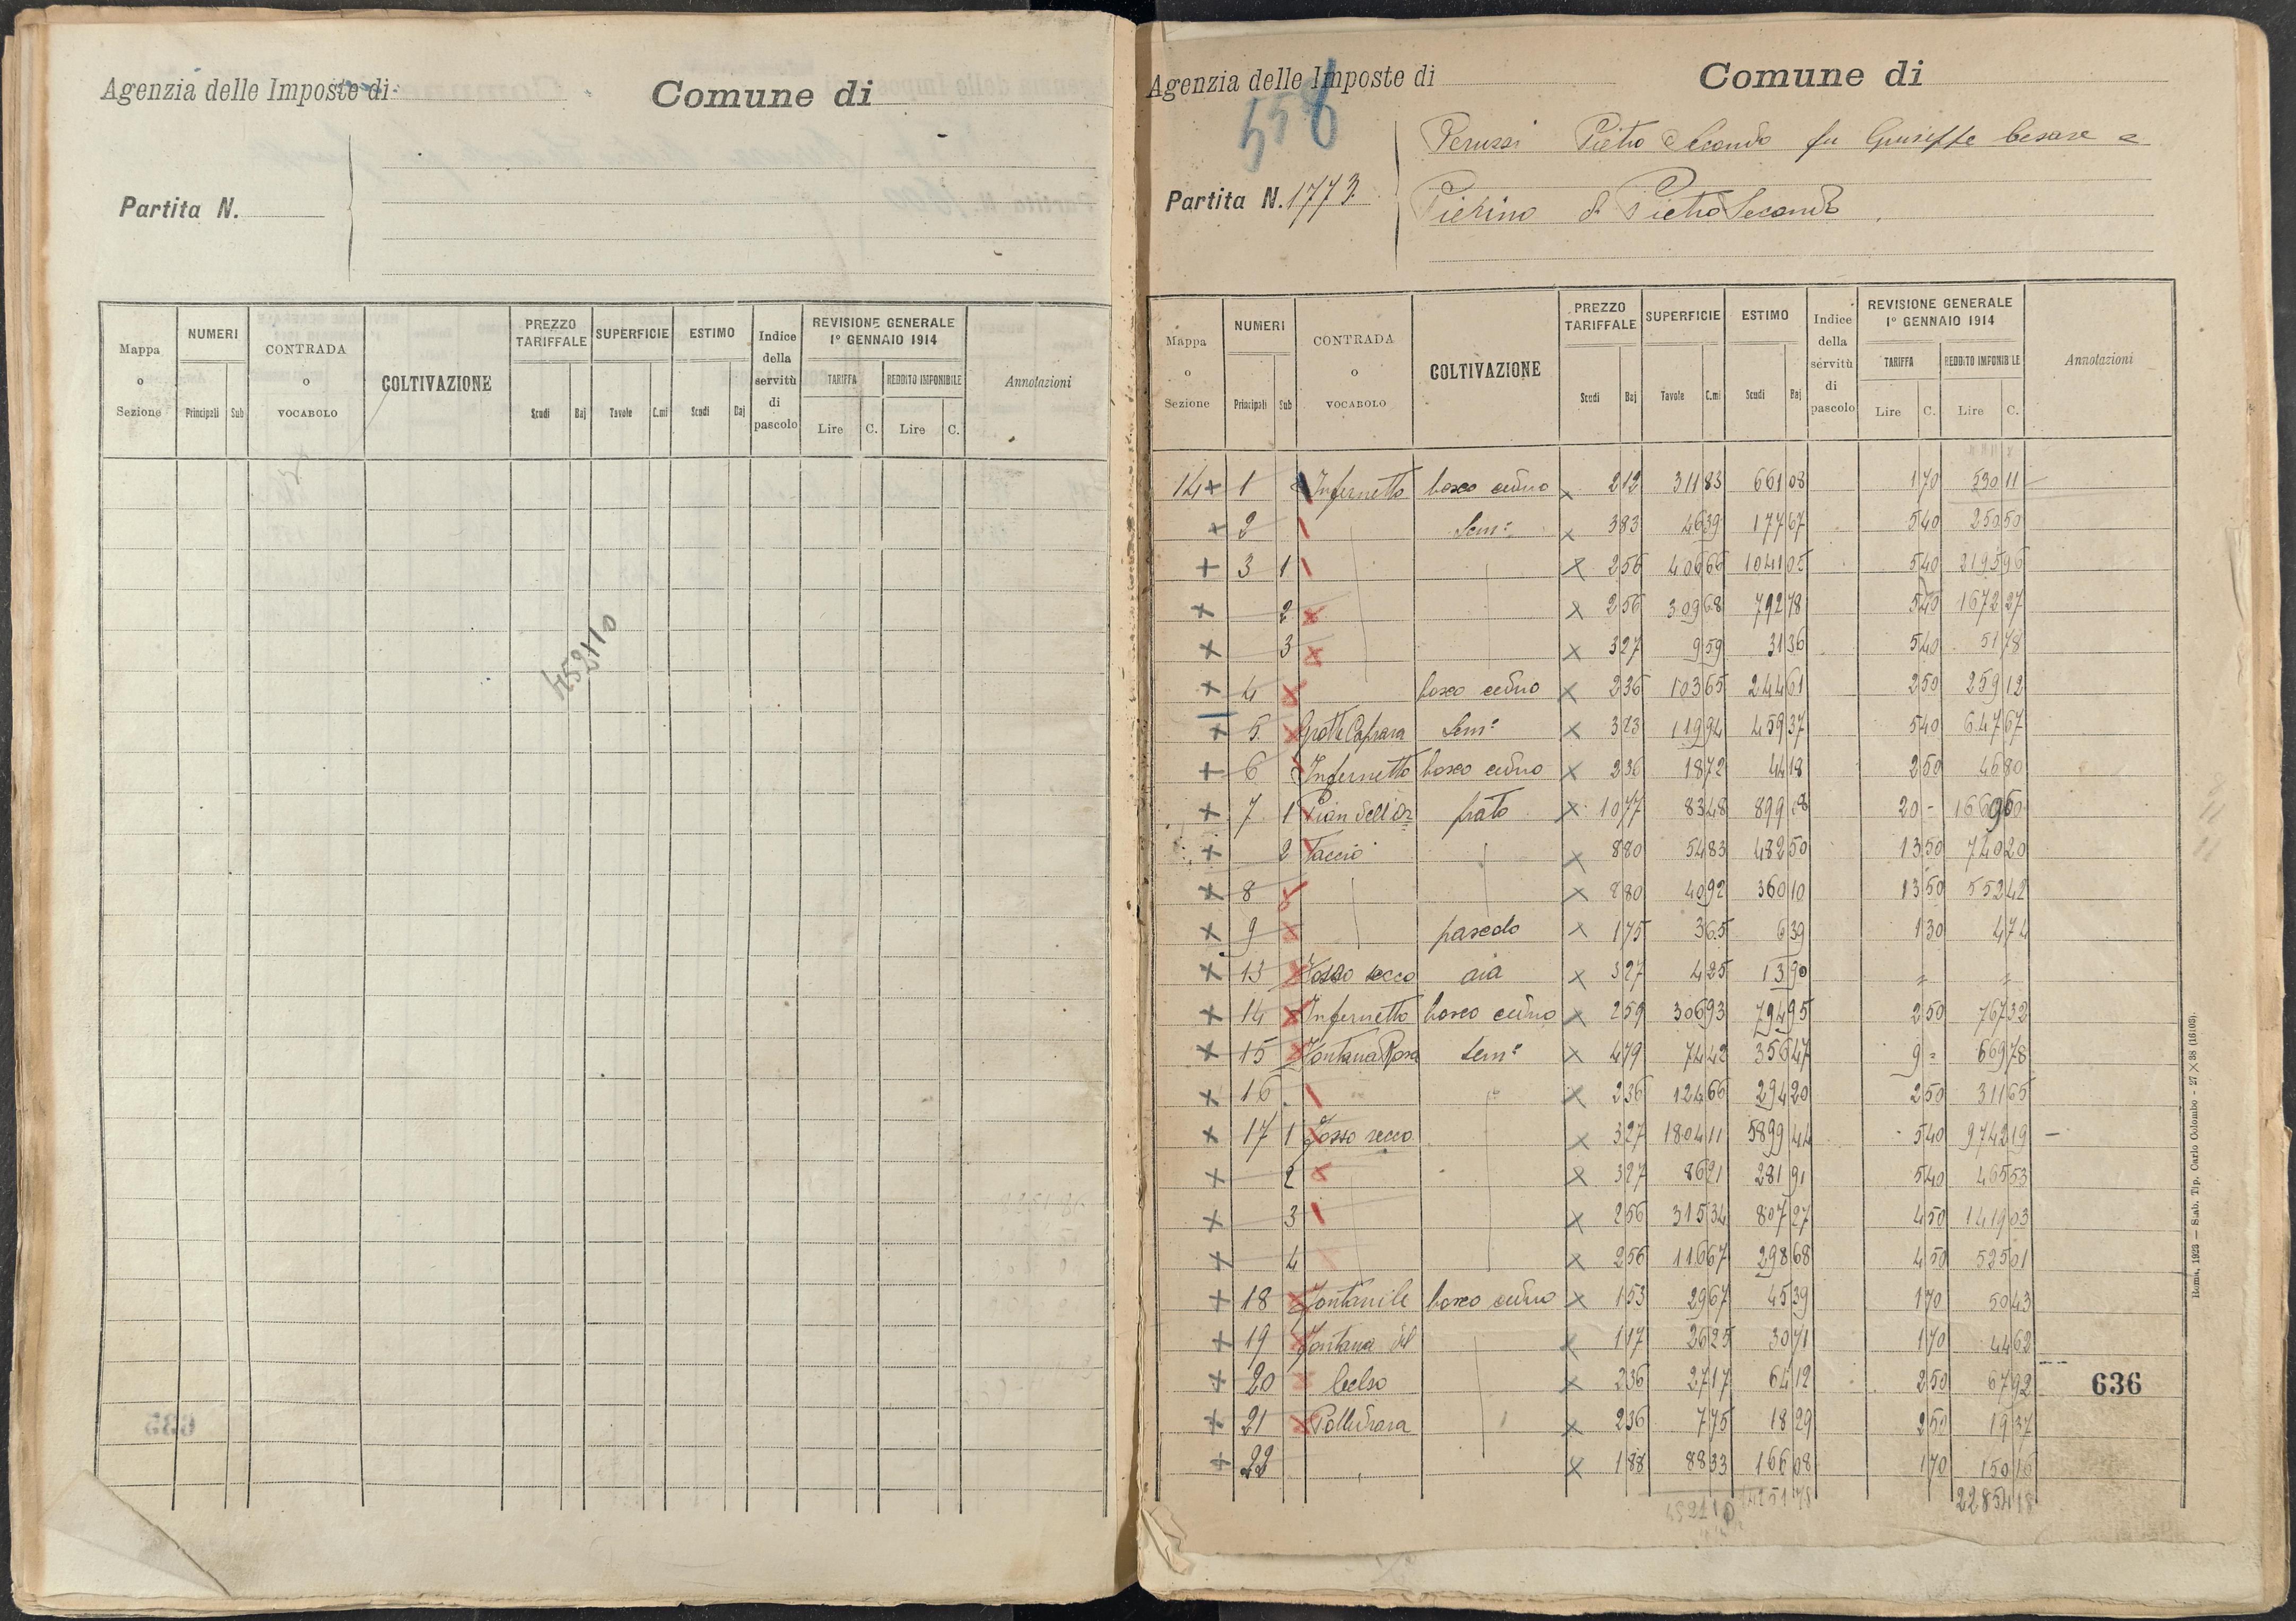 Agenzia delle Imposte di
Comune di
Partita N.
Mappa o Sezione | NUMERI Principali Sub | CONTRADA o VOCABOLO | COLTIVAZIONE | PREZZO TARIFFALE Scudi Baj | SUPERFICIE Tavole C.mi | ESTIMO Scudi Baj | Indice della servitù di pascolo | REVISIONE GENERALE 1º GENNAIO 1914 TARIFFA Lire C. REDDITO IMPONIBILE Lire C. | Annotazioni
452110
Agenzia delle Imposte di
Comune di
558
Partita N. 1773
Peruzzi Pietro Secondo fu Giuseppe Cesare e
Pierino di Pietro Secondo
Mappa o Sezione | NUMERI Principali Sub | CONTRADA o VOCABOLO | COLTIVAZIONE | PREZZO TARIFFALE Scudi Baj | SUPERFICIE Tavole C.mi | ESTIMO Scudi Baj | Indice della servitù di pascolo | REVISIONE GENERALE 1º GENNAIO 1914 TARIFFA Lire C. REDDITO IMPONIBILE Lire C. | Annotazioni
14 + 1 Infernetto bosco ceduo x 2 12 311 83 661 08 1 70 530 11
+ 2 Sem.º x 3 83 46 39 177 67 5 40 250 50
+ 3 1 x 2 56 406 66 1041 05 5 40 2195 96
x 2 x 2 56 309 68 792 78 5 40 1672 27
x 3 x 3 27 9 59 31 36 5 40 51 78
x 4 bosco ceduo x 2 36 103 65 244 61 2 50 259 12
x 5 Grotte Caprara Sem.º x 3 83 119 94 459 37 5 40 647 67
+ 6 Infernetto bosco ceduo x 2 36 18 72 44 18 2 50 46 80
x 7 1 Pian dell'Or prato x 10 77 83 48 899 08 20 - 1669 60
x 2 Taccio x 8 80 54 83 482 50 13 50 740 20
x 8 x 8 80 40 92 360 10 13 50 552 42
x 9 pascolo x 1 75 3 65 6 39 1 30 4 74
x 13 Fosso secco aia x 3 27 4 25 13 90 = =
x 14 Infernetto bosco ceduo x 2 59 306 93 794 95 2 50 767 32
x 15 Fontana Rosa Sem.º x 4 79 74 42 356 47 9 = 669 78
x 16 x 2 36 124 66 294 20 2 50 311 65
x 17 1 Fosso secco x 3 27 1804 11 5899 44 5 40 9742 19
x 2 x 3 27 86 21 281 91 5 40 465 53
x 3 x 2 56 315 34 807 27 4 50 1419 03
x 4 x 2 56 116 67 298 68 4 50 525 01
x 18 Fontanile bosco ceduo x 1 53 29 67 45 39 1 70 50 43
x 19 Fontana del x 1 17 26 25 30 71 1 70 44 62
x 20 Celso x 2 36 27 17 64 12 2 50 67 92
x 21 Polledrara x 2 36 7 75 18 29 2 50 19 37
x 22 x 1 88 88 33 166 08 1 70 150 16
4521 10 14251 78 22854 18
636
Roma, 1923 — Stab. Tip. Carlo Colombo - 27 × 38 (16103).